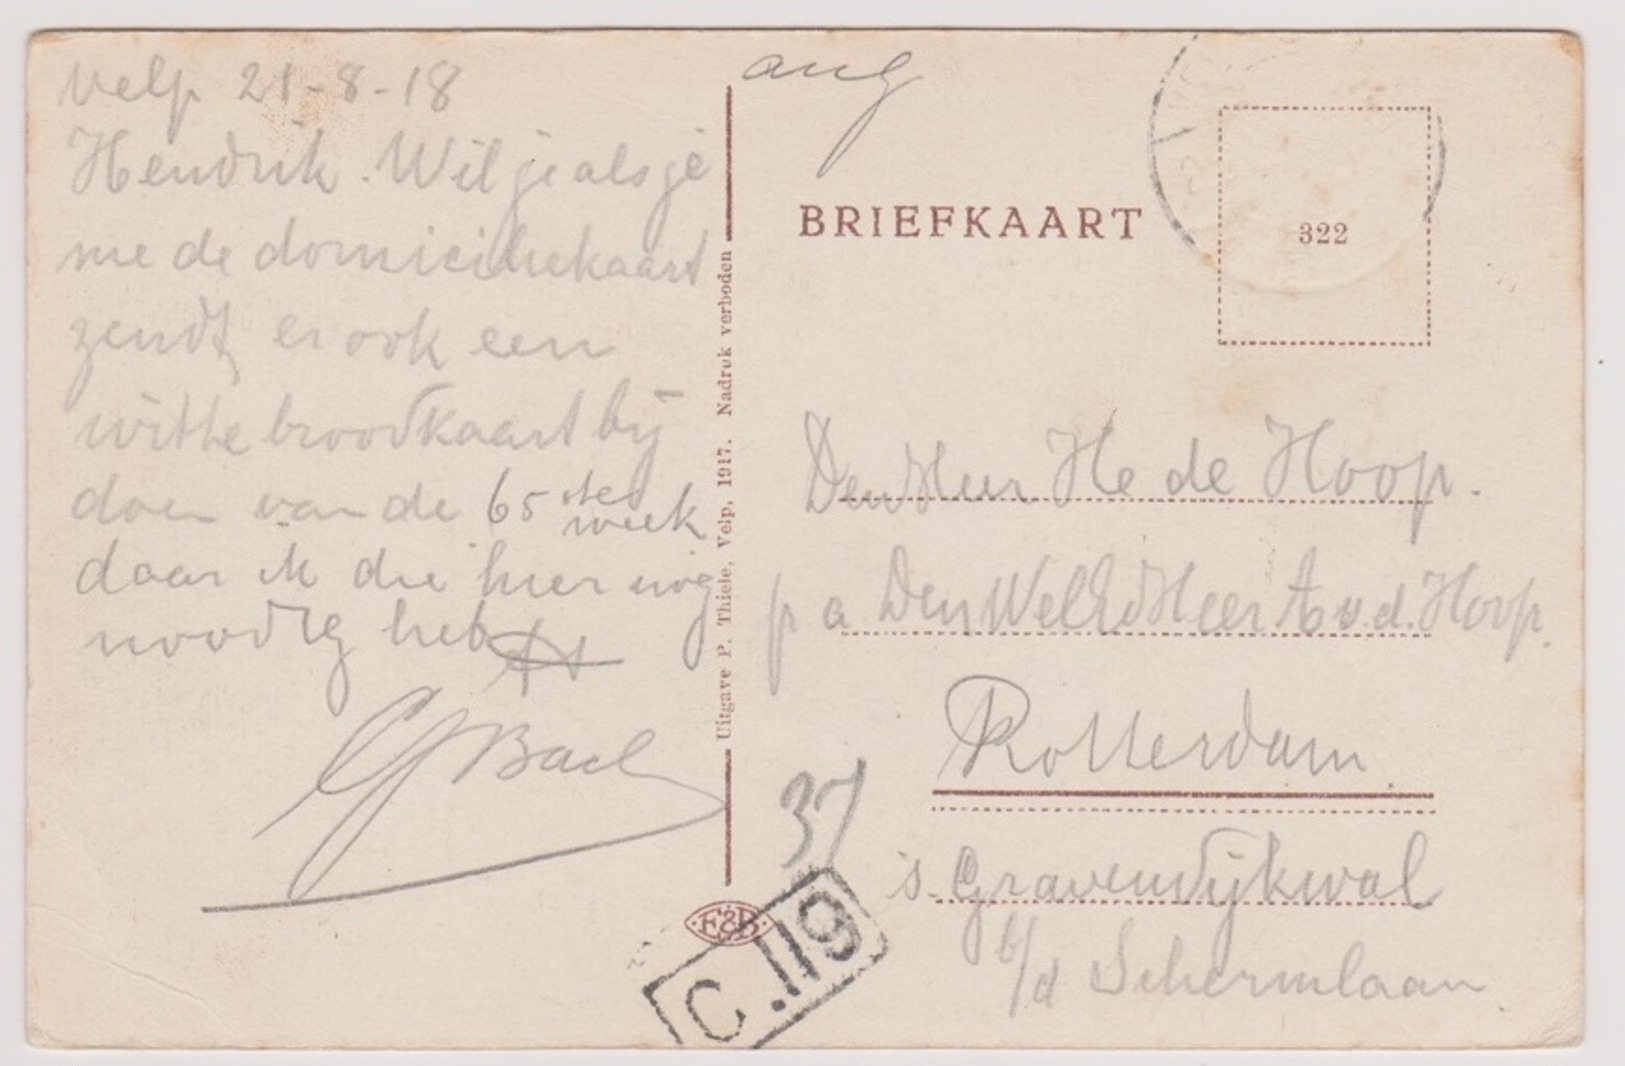 Velp 21-8-18
Hendrik. Wil je als je
me de domiciliekaart
zendt, er ook een
witte broodkaart bij
doen van de 65ste week
daar ik die hier nog
noodig heb
aug
BRIEFKAART
322
Uitgave P. Thiele, Velp, 1917. Nadruk verboden
Den Heer He de Hoop.
p a Den WelEd Heer A v.d. Hoop.
Rotterdam
's Gravendijkwal
b/d Schermlaan
37
E&B
C.119